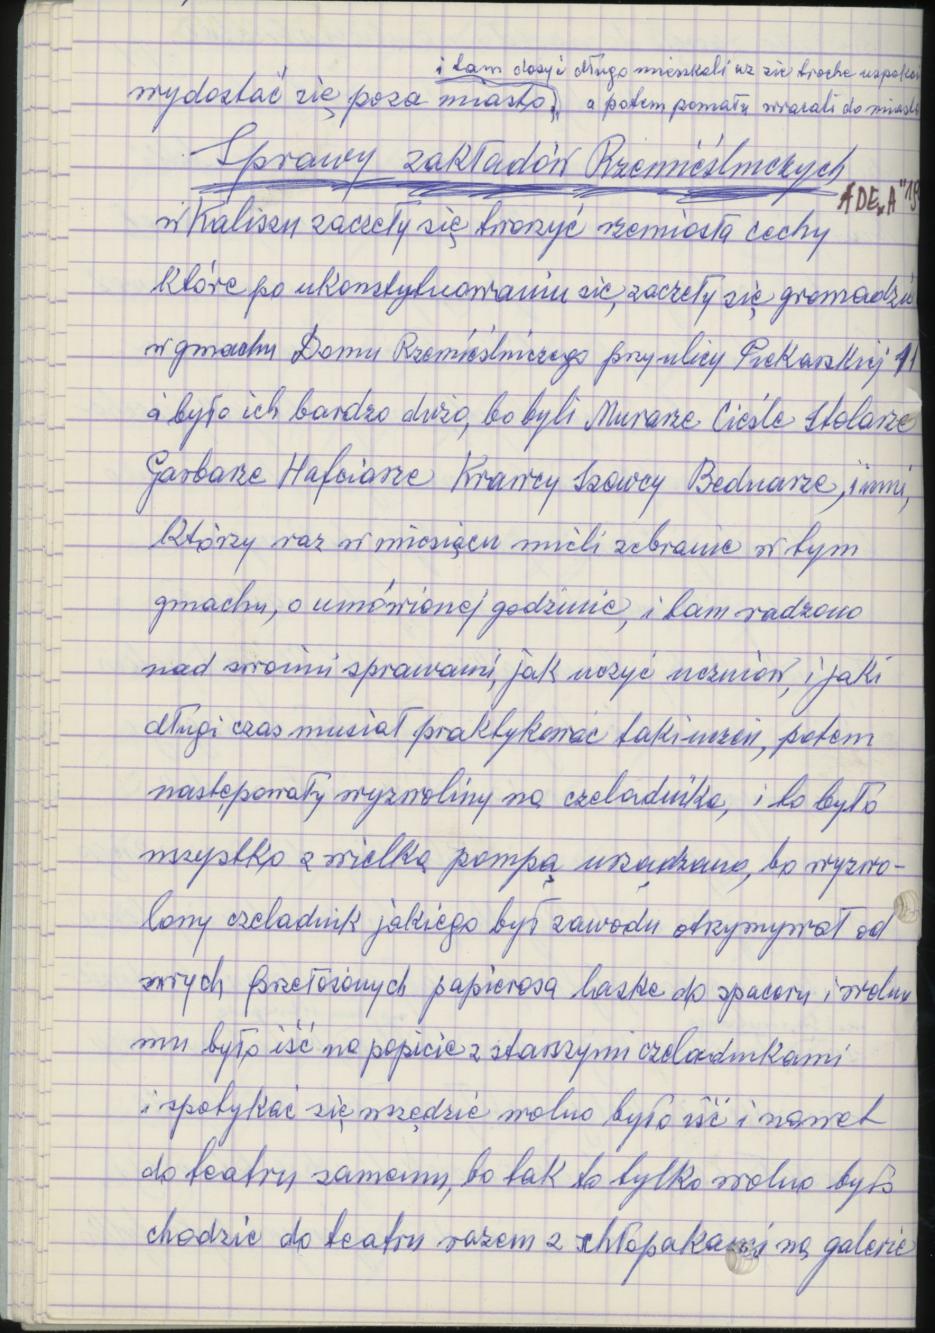 i tam dosyć długo mieszkali aż się trochę uspokoi
wydostać się poza miasto, a potem pomału wracali do miasta
Sprawy zakładów Rzemieślniczych
ADExA "19
w Kaliszu zaczeły się tworzyć rzemiosła cechy
które po ukonstytuowaniu się, zaczeły się gromadzić
w gmachu Domu Rzemieślniczego przy ulicy Piekarskiej 11
a było ich bardzo dużo, bo byli Murarze Cieśle Stolarze
Garbarze Hafciarze Krawcy Szewcy Bednarze, i inni,
którzy raz w miesiącu mieli zebranie w tym
gmachu, o umówionej godzinie, i tam radzono
nad swoimi sprawami, jak uczyć uczniów, i jaki
długi czas musiał praktykować taki uczeń, potem
następowały wyzwoliny na czeladnika, i to było
wszystko z wielką pompą urządzane, bo wyzwo-
lony czeladnik jakiego był zawodu otrzymywał od
swych przełożonych papierosa laskę do spaceru i wolno
mu było iść na popicie z starszymi czeladnikami
i spotykać się wszędzie wolno było iść i nawet
do teatru samemu, bo tak to tylko wolno było
chodzić do teatru razem z chłopakami na galerię